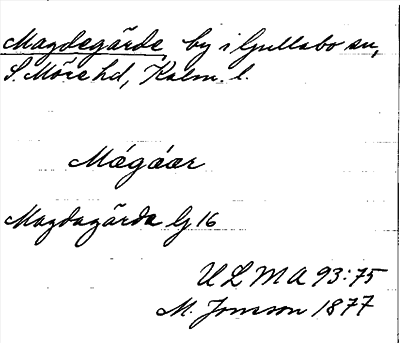 Magdegärde, by i Gullabo sn,
S. Möre hd, Kalm. l.
Mágáär
Magdagärda G 16
ULMA 93:75
M. Jonsson 1877